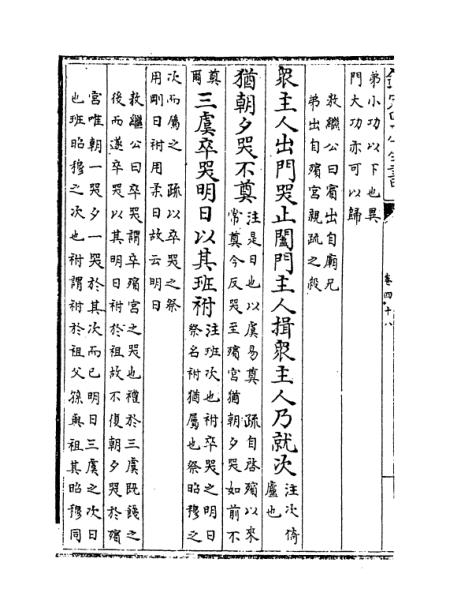 欽定四庫全書
卷四十八
弟小功以下也異
門大功亦可以歸
敖繼公曰賓出自廟兄
弟出自殯宫親疏之殺
衆主人出門哭止闔門主人揖衆主人乃就次注次倚
廬也
猶朝夕哭不奠注是日也以虞易奠 疏自啓殯以來
常奠今反哭至殯宫猶朝夕哭如前不
奠
爾
三虞卒哭明日以其班祔注班次也祔卒哭之明日
祭名祔猶屬也祭昭穆之
次而屬之 疏以卒哭之祭
用剛日祔用柔日故云明日
敖繼公曰卒哭謂卒殯宫之哭也禮於三虞旣餞之
後而遂卒哭以其明日祔於祖故不復朝夕哭於殯
宫唯朝一哭夕一哭於其次而已明日三虞之次日
也班昭穆之次也祔謂祔於祖父孫與祖其昭穆同